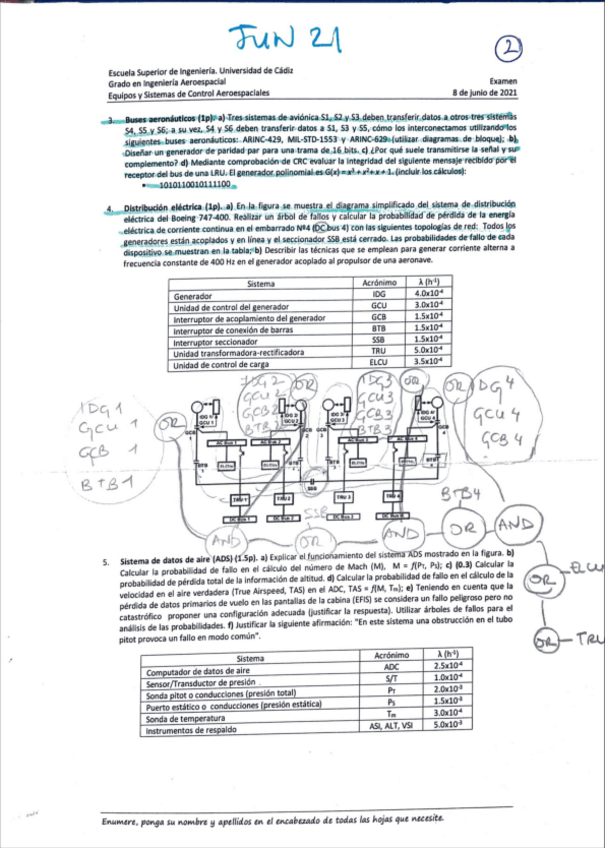 JUN 21
2
Escuela Superior de Ingeniería. Universidad de Cádiz
Grado en Ingeniería Aeroespacial
Examen
Equipos y Sistemas de Control Aeroespaciales
8 de junio de 2021
3. Buses aeronáuticos (1p). a) Tres sistemas de aviónica S1, S2 y S3 deben transferir datos a otros tres sistemas
S4, S5 y S6; a su vez, S4 y S6 deben transferir datos a S1, S3 y S5, cómo los interconectamos utilizando los
siguientes buses aeronáuticos: ARINC-429, MIL-STD-1553 y ARINC-629 (utilizar diagramas de bloque); b)
Diseñar un generador de paridad par para una trama de 16 bits. c) ¿Por qué suele transmitirse la señal y su
complemento? d) Mediante comprobación de CRC evaluar la integridad del siguiente mensaje recibido por el
receptor del bus de una LRU. El generador polinomial es G(x) = x³ + x² + x + 1. (incluir los cálculos):
• 1010110010111100
4. Distribución eléctrica (1p). a) En la figura se muestra el diagrama simplificado del sistema de distribución
eléctrica del Boeing-747-400. Realizar un árbol de fallos y calcular la probabilidad de pérdida de la energía
eléctrica de corriente continua en el embarrado Nº4 (DC bus 4) con las siguientes topologías de red: Todos los
generadores están acoplados y en línea y el seccionador SSB está cerrado. Las probabilidades de fallo de cada
dispositivo se muestran en la tabla; b) Describir las técnicas que se emplean para generar corriente alterna a
frecuencia constante de 400 Hz en el generador acoplado al propulsor de una aeronave.
Sistema Acrónimo λ (h⁻¹)
Generador IDG 4.0x10⁻⁴
Unidad de control del generador GCU 3.0x10⁻⁴
Interruptor de acoplamiento del generador GCB 1.5x10⁻⁴
Interruptor de conexión de barras BTB 1.5x10⁻⁴
Interruptor seccionador SSB 1.5x10⁻⁴
Unidad transformadora-rectificadora TRU 5.0x10⁻⁴
Unidad de control de carga ELCU 3.5x10⁻⁴
IDG 1
GCU 1
GCB 1
BTB1
OR
IDG 2
GCU 2
GCB 2
BTB 2
OR
IDG 3
GCU 3
GCB 3
BTB 3
OR
OR
IDG 4
GCU 4
GCB 4
SSB
TRU 1
TRU 2
TRU 3
SSB
BTB4
AND
OR
AND
OR
AND
5. Sistema de datos de aire (ADS) (1.5p). a) Explicar el funcionamiento del sistema ADS mostrado en la figura. b)
Calcular la probabilidad de fallo en el cálculo del número de Mach (M), M = f(Pт, Ps); c) (0.3) Calcular la
probabilidad de pérdida total de la información de altitud. d) Calcular la probabilidad de fallo en el cálculo de la
velocidad en el aire verdadera (True Airspeed, TAS) en el ADC, TAS = f(M, Tm); e) Teniendo en cuenta que la
pérdida de datos primarios de vuelo en las pantallas de la cabina (EFIS) se considera un fallo peligroso pero no
catastrófico proponer una configuración adecuada (justificar la respuesta). Utilizar árboles de fallos para el
análisis de las probabilidades. f) Justificar la siguiente afirmación: "En este sistema una obstrucción en el tubo
pitot provoca un fallo en modo común".
OR ELCU
OR TRU
Sistema Acrónimo λ (h⁻¹)
Computador de datos de aire ADC 2.5x10⁻⁴
Sensor/Transductor de presión S/T 1.0x10⁻⁴
Sonda pitot o conducciones (presión total) Pт 2.0x10⁻³
Puerto estático o conducciones (presión estática) Ps 1.5x10⁻³
Sonda de temperatura Tm 3.0x10⁻⁴
Instrumentos de respaldo ASI, ALT, VSI 5.0x10⁻³
Enumere, ponga su nombre y apellidos en el encabezado de todas las hojas que necesite.